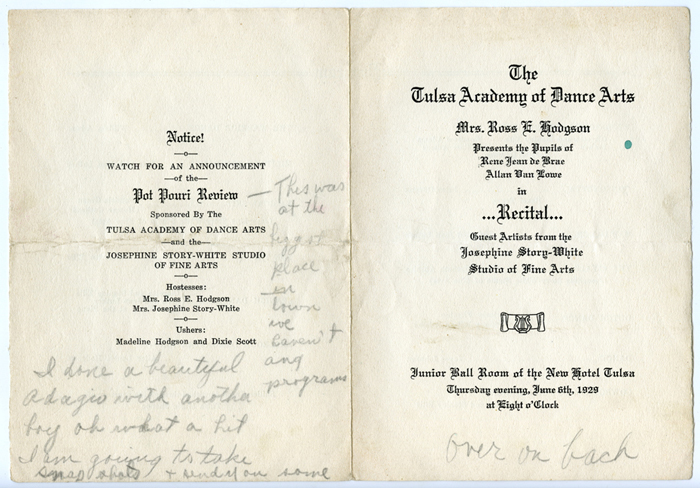 Notice!
WATCH FOR AN ANNOUNCEMENT
—of the—
Pot Pouri Review
Sponsored By the
TULSA ACADEMY OF DANCE ARTS
—and the—
JOSEPHINE STORY-WHITE STUDIO
OF FINE ARTS
Hostesses:
Mrs. Ross E. Hodgson
Mrs. Josephine Story-White
Ushers:
Madeline Hodgson and Dixie Scott
— This was
at the
biggest
place
in
town
we
haven't
any
programs
I done a beautiful
adagio with anotha
boy oh what a hit
I am going to take
snap shots + send you some
The
Tulsa Academy of Dance Arts
Mrs. Ross E. Hodgson
Presents the Pupils of
Rene Jean de Brae
Allan Van Lowe
in
...Recital...
Guest Artists from the
Josephine Story-White
Studio of Fine Arts
Junior Ball Room of the New Hotel Tulsa
Thursday evening, June 6th, 1929
at Eight o'Clock
over on back